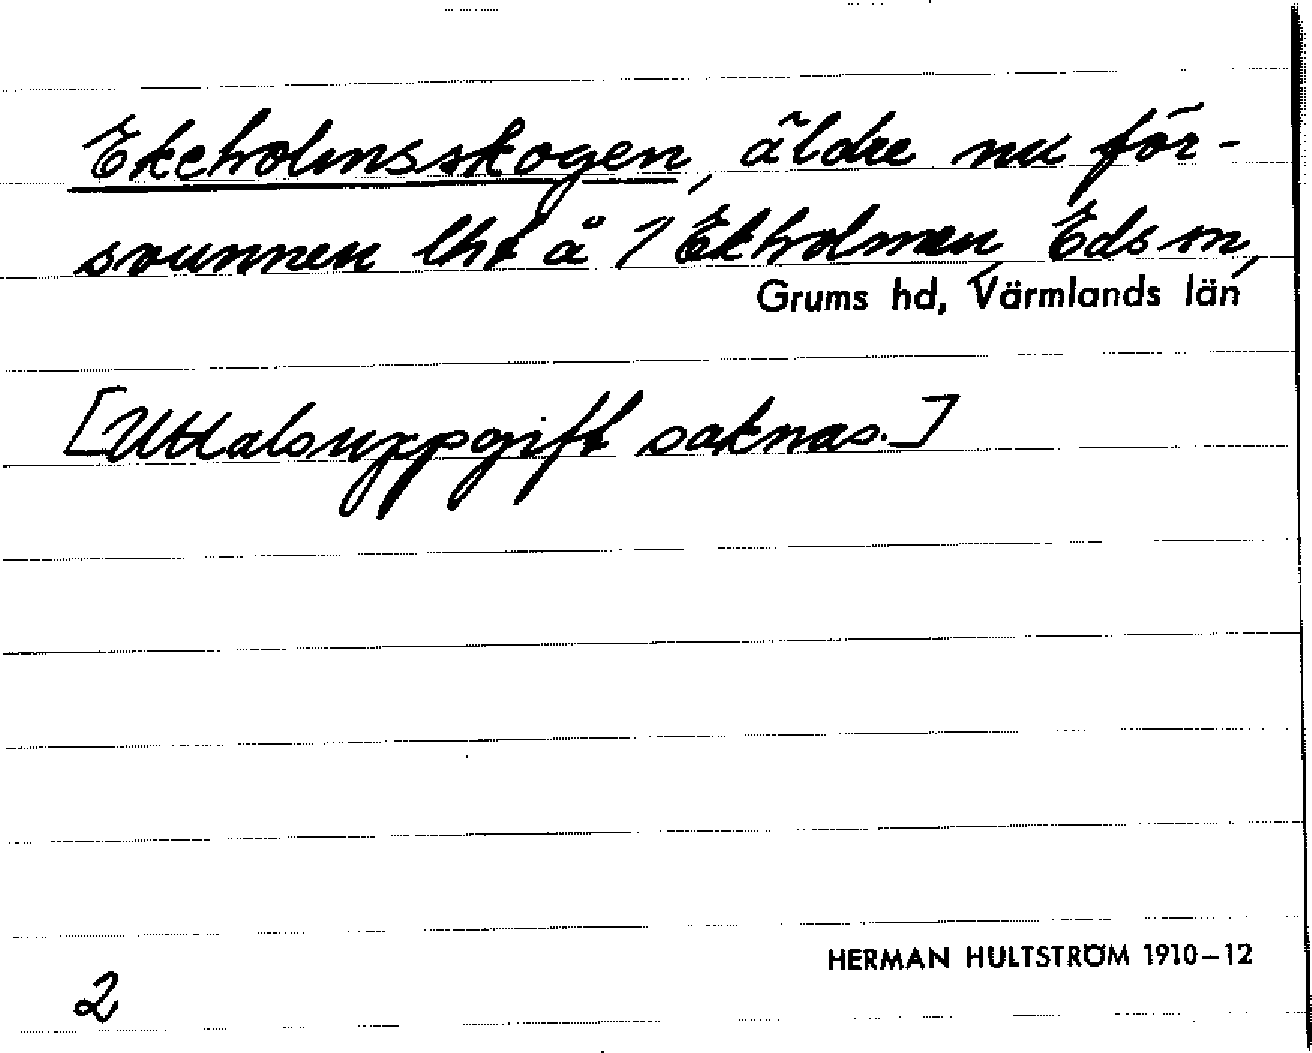 Ekeholmsskogen, äldre nu för-
svunnen lht å 1 Ekholmen, Eds sn,
Grums hd, Värmlands län
[Uttalsuppgift saknas.]
HERMAN HULTSTRÖM 1910–12
2